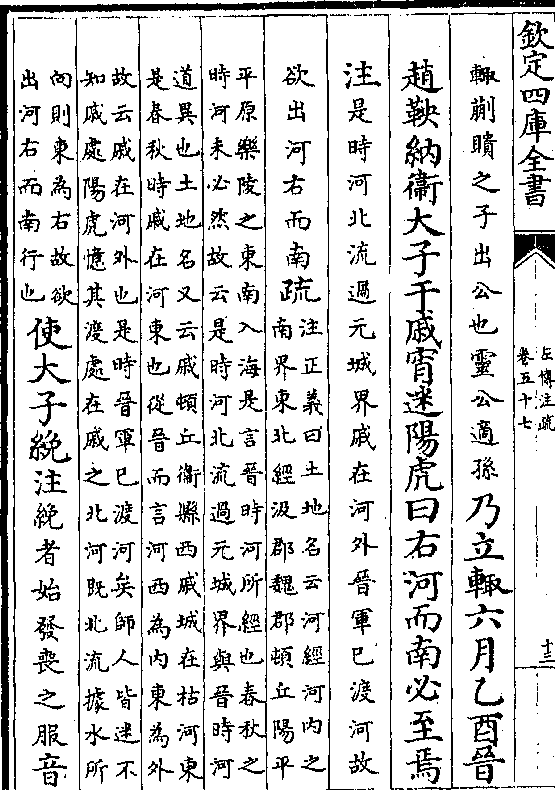 欽定四庫全書
左傳注疏
卷五十七
十三
輙蒯聵之子出公也靈公適孫乃立輙六月乙酉晉
趙鞅納衞大子于戚宵迷陽虎曰右河而南必至焉
注是時河北流過元城界戚在河外晉軍已渡河故
欲出河右而南疏注正義曰土地名云河經河内之
南界東北經汲郡魏郡頓丘陽平
平原樂陵之東南入海是言晉時河所經也春秋之
時河未必然故云是時河北流過元城界與晉時河
道異也土地名又云戚頓丘衞縣西戚城在枯河東
是春秋時戚在河東也從晉而言河西為内東為外
故云戚在河外也是時晉軍已渡河矣師人皆迷不
知戚處陽虎憶其渡處在戚之北河既北流據水所
向則東為右故欲
出河右而南行也使大子絻注絻者始發喪之服音